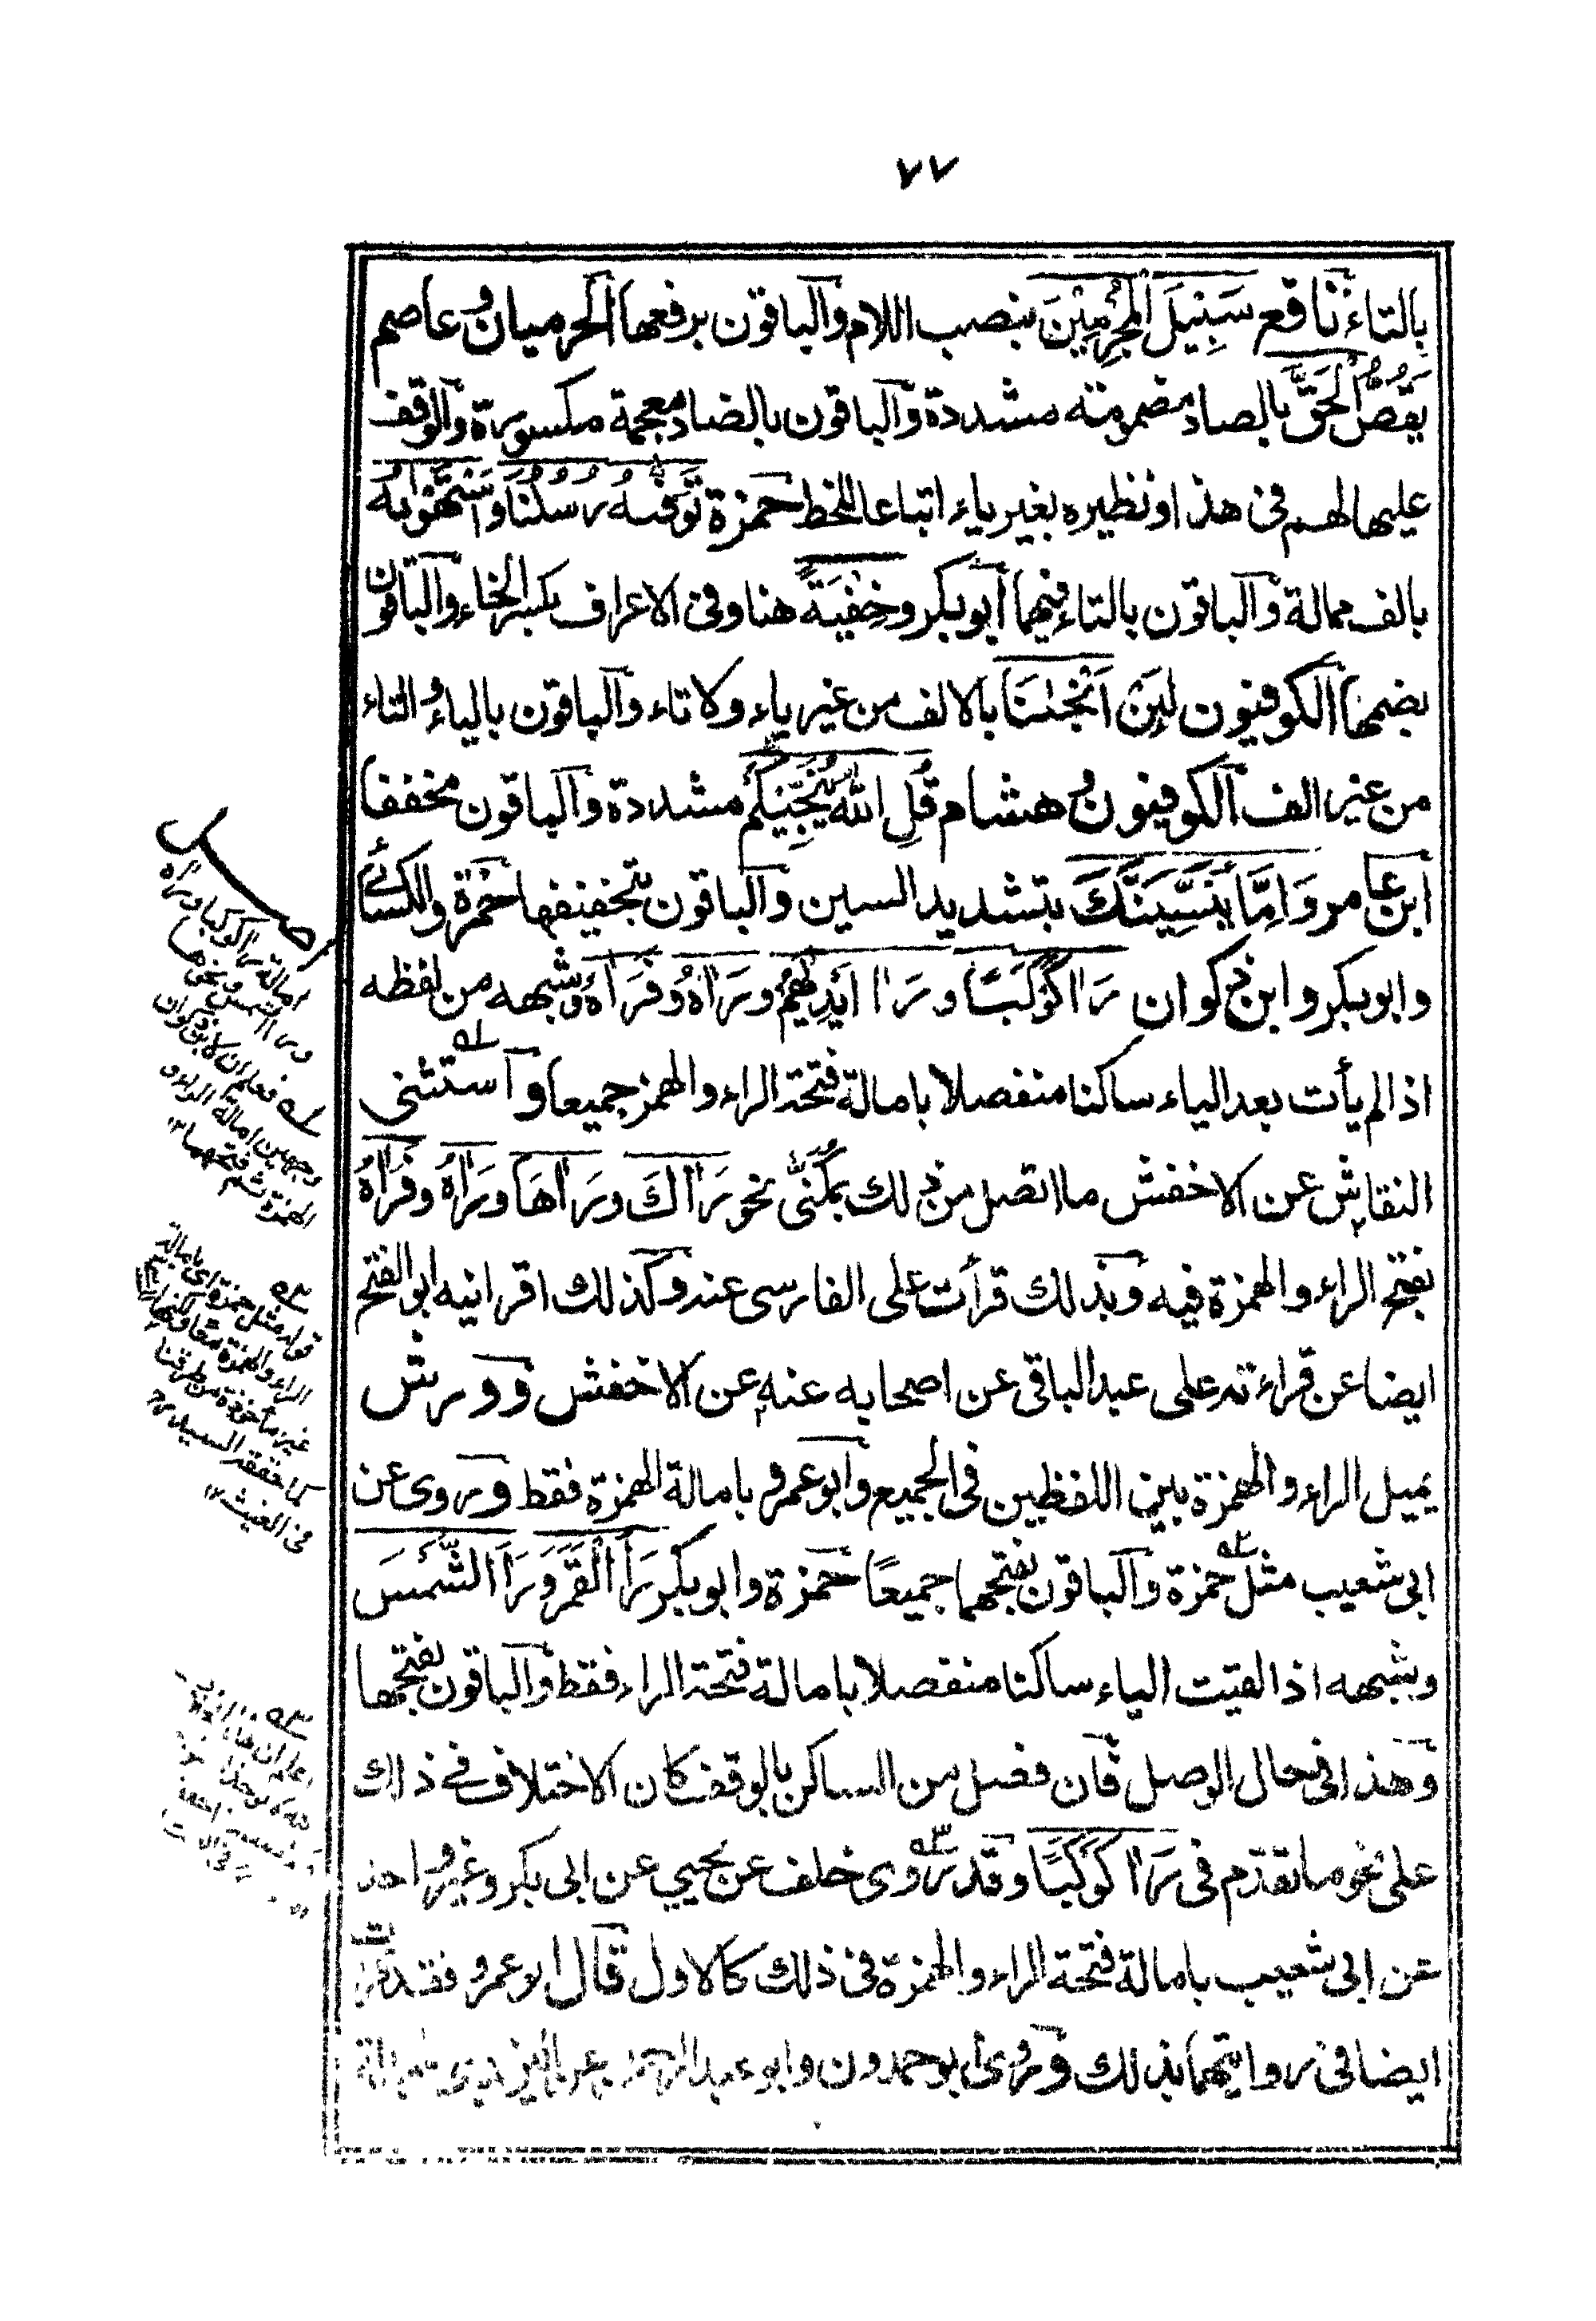 ٧٧
بالتاء نافع سَبِيلَ الْمُجْرِمِينَ بنصب اللام والباقون برفعها الحرميان وعاصم
يَقُصُّ الْحَقَّ بالصاد مضمومة مشددة والباقون بالضاد معجمة مكسورة والوقف
عليها لهم فى هذا ونظيره بغير ياء اتباعا للخط حمزة تَوَفّٰىهُ رُسُلُنَا وَاسْتَهْوٰىهُ
بالف ممالة والباقون بالتاء فيهما أبو بكر وخِفْيَةً هنا وفى الاعراف بكسر الخاء والباقون
بضمها الكوفيون لَئِنْ اَنْجٰىنَا بالالف من غير ياء ولا تاء والباقون بالياء والتاء
من غير الف الكوفيون وهشام قُلِ اللهُ يُنَجِّيْكُمْ مشددة والباقون مخففا
ابن عامر وَاِمَّا يُنَسِّيَنَّكَ بتشديد السين والباقون بتخفيفها حمزة والكسائى
وابو بكر وابن ذكوان رَاٰ كَوْكَبًا و رَاٰ اَيْدِيَهُمْ ورَاٰهُ وفَرَاٰهُ وشبهه من لفظه
اذا لم يأت بعد الياء ساكنا منفصلا بامالة فتحة الراء والهمز جميعا واستثنى
النقاش عن الاخفش ما اتصل من ذلك بمكنى نحو رَاٰكَ ورَاٰهَا ورَاٰهُ وفَرَاٰهُ
بفتح الراء والهمزة فيه وبذلك قرأت على الفارسى عنه وكذلك اقرانيه ابو الفتح
ايضا عن قراءته على عبد الباقى عن اصحابه عنه عن الاخفش وورش
يميل الراء والهمزة بين اللفظين فى الجميع وابو عمرو بامالة الهمزة فقط وروى عن
ابى شعيب مثل حمزة والباقون بفتحهما جميعًا حمزة وابو بكر رَاَ الْقَمَرَ ورَاَ الشَّمْسَ
وشبهه اذا لقيت الياء ساكنا منفصلا بامالة فتحة الراء فقط والباقون بفتحها
وهذا فى حال الوصل فان فصل من الساكن بالوقف كان الاختلاف فى ذلك
على نحو ما تقدم فى رَاٰ كَوْكَبًا وقد روى خلف عن يحيى عن ابى بكر وغير واحد
عن ابى شعيب بامالة فتحة الراء والهمزة فى ذلك كالاول قال ابو عمرو فقد قرأت
ايضا فى روايتهما بذلك وروى ابو حمدون وابو عبد الرحمن عن اليزيدى
امالة را كوكبا وراه
ورا الشمس ونحوها
له فعلم ان لابن ذكوان
وجهين امالة الراء و
الهمزة ثم فتحهما ١٢
قوله مثل حمزة اى بامالة
الراء والهمزة معا
غير مأخوذة من طرقنا
كما حققه السيد رح
فى الغيث ١٢